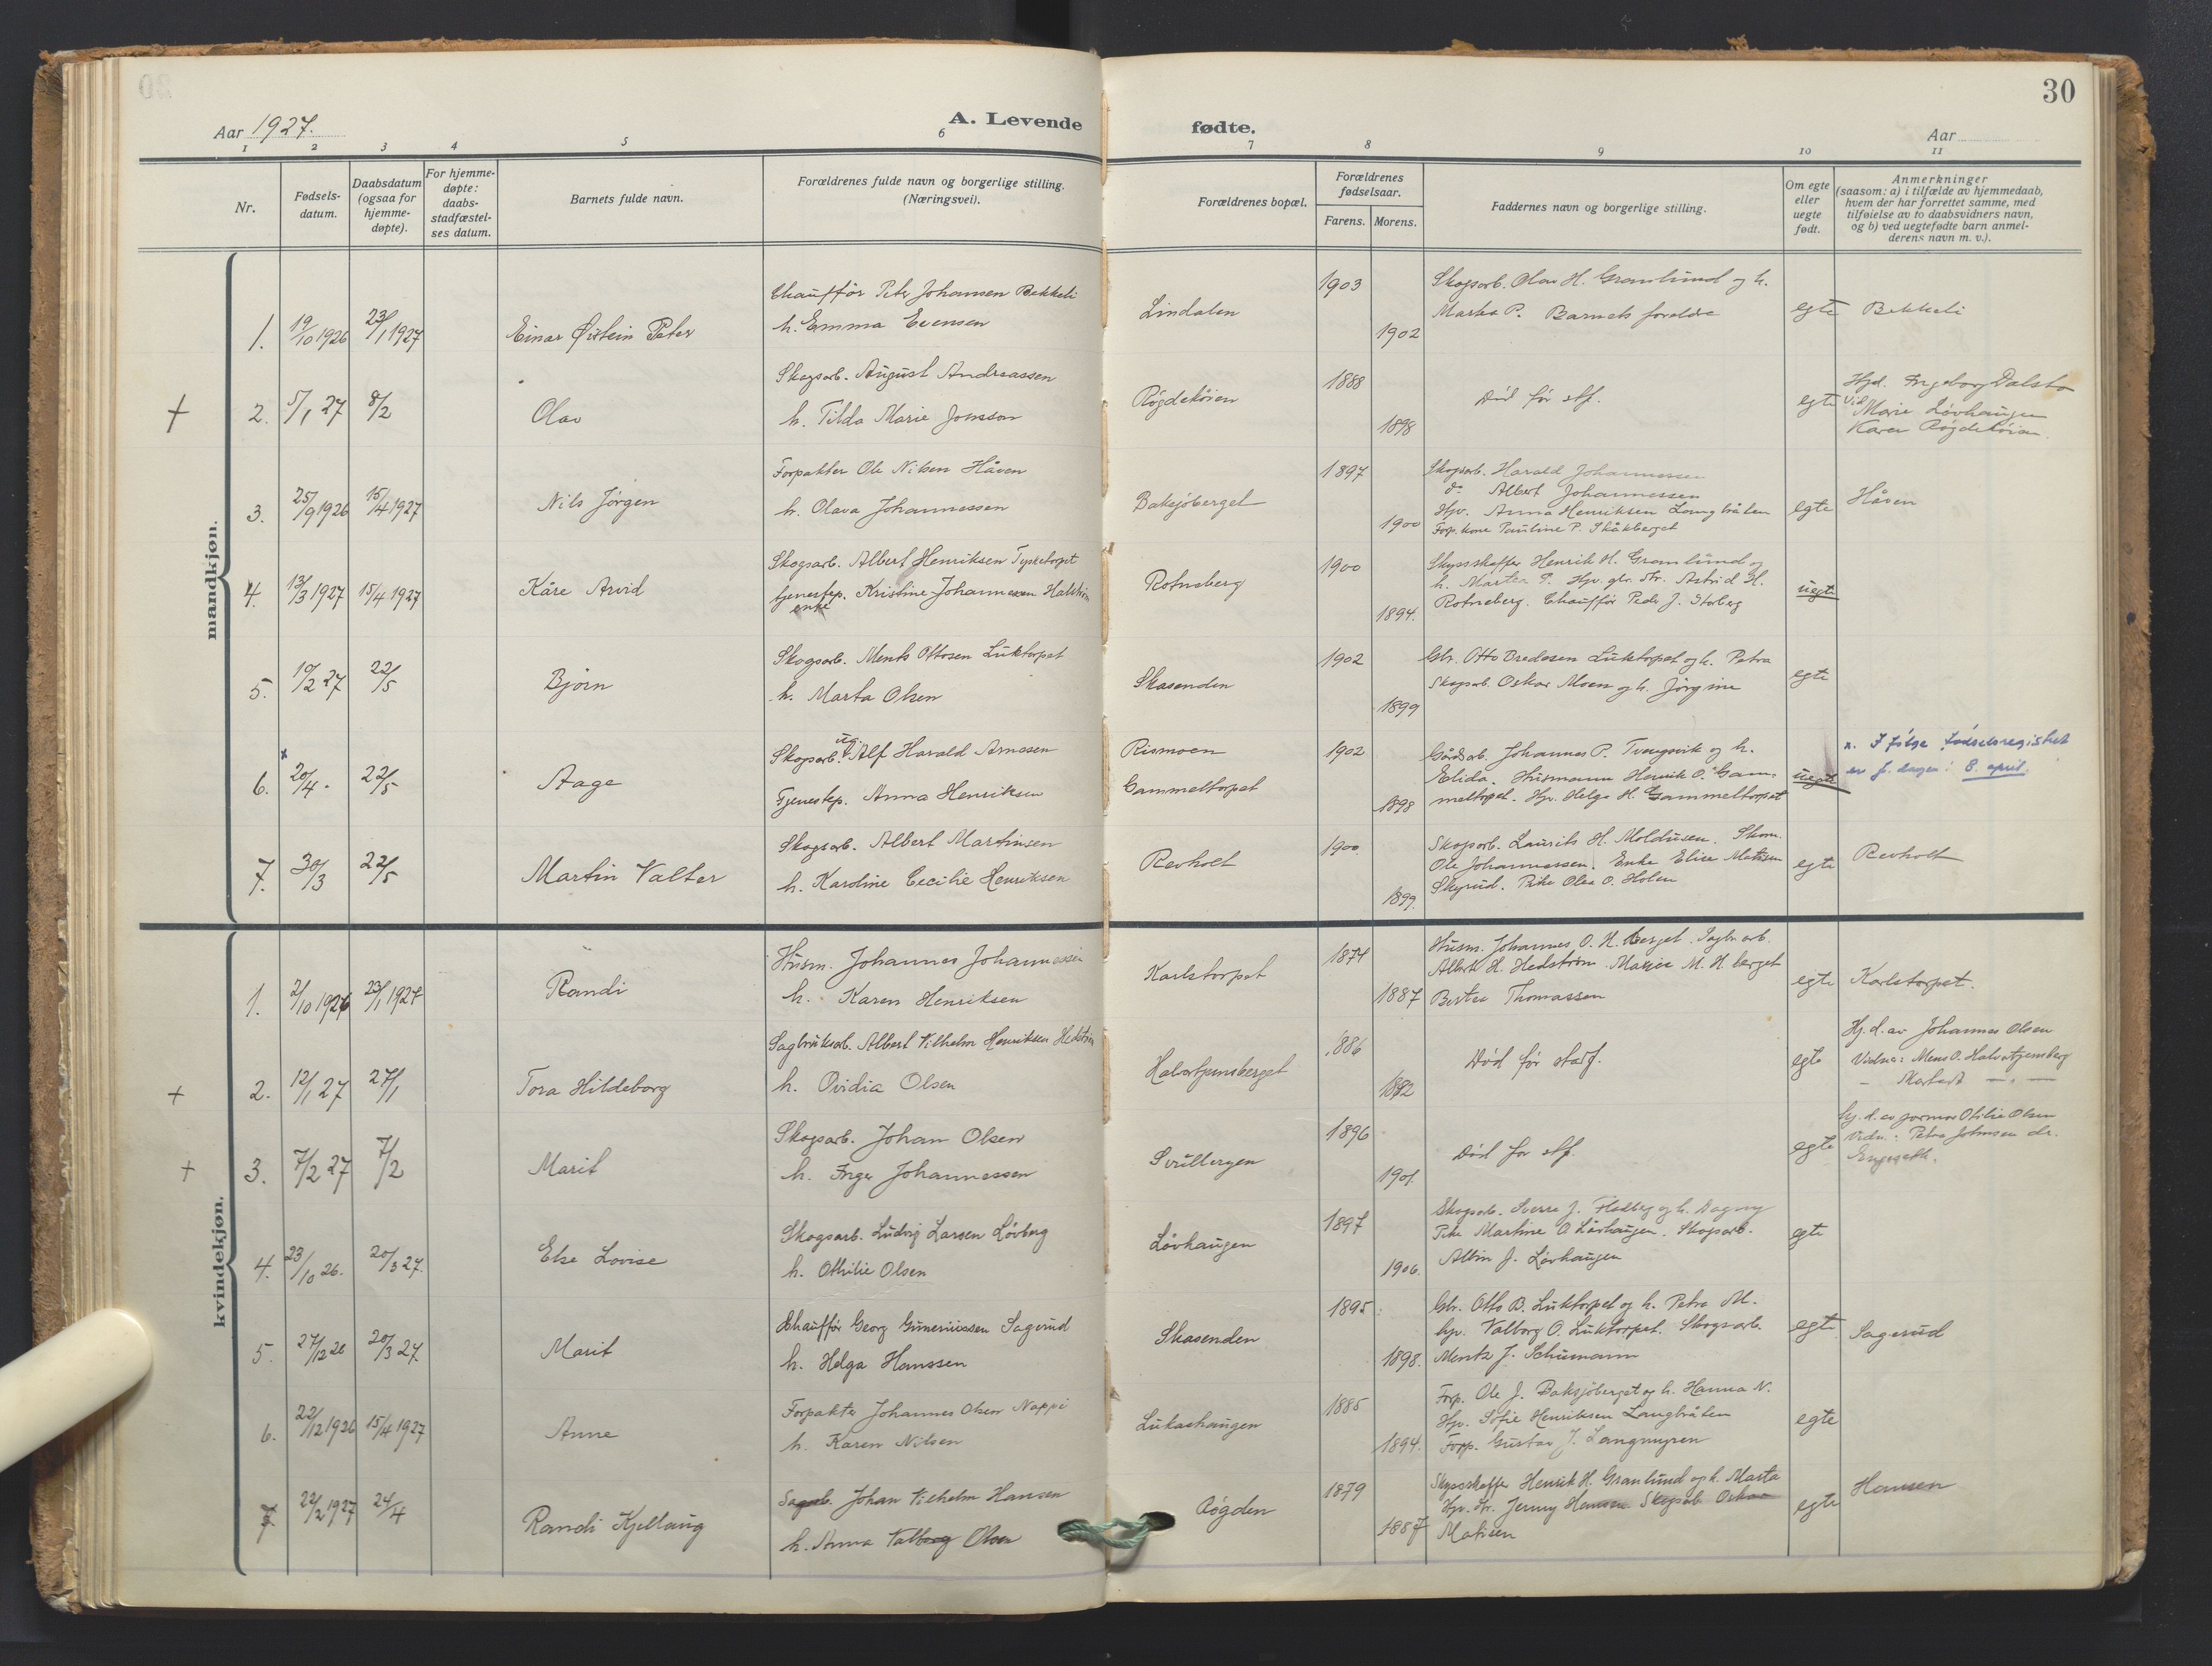 30
Aar 1927.
A. Levende fødte.
Aar
1 2 3 4 5 6 7 8 9 10 11
Nr.
Fødsels-
datum.
Daabsdatum
(ogsaa for
hjemme-
døpte).
For hjemme-
døpte:
daabs-
stadfæstel-
ses datum.
Barnets fulde navn.
Forældrenes fulde navn og borgerlige stilling.
(Næringsvei).
Forældrenes bopæl.
Forældrenes
fødselsaar.
Farens. Morens.
Faddernes navn og borgerlige stilling.
Om egte
eller
uegte
født.
Anmerkninger
(saasom: a) i tilfælde av hjemmedaab,
hvem der har forrettet samme, med
tilføielse av to daabsvidners navn,
og b) ved uegtefødte barn anmel-
derens navn m. v.).
mandkjøn.
1. 19/10 1926 23/1 1927
Einar Øistein Peter
Chauffør Peter Johansen Bekkeli
h. Emma Evensen
Lindalen
1903
1902
Skogsarb. Olav H. Granlund og h.
Marta P. Barnets foreldre
egte
Bekkeli
+ 2. 5/1 27 8/2
Olav
Skogsarb. August Andreassen
h. Tilda Marie Jonsson
Røgdekøien
1888
1898
Død før stf.
egte
Hjd. Ingeborg Dalsto
Vid Marie Løvhaugen
Karen Røgdekøien.
3. 25/9 1926 15/4 1927
Nils Jørgen
Forpakter Ole Nilsen Håven
h. Olava Johannessen
Baksjøberget
1897
1900
Skogsarb. Harald Johannessen
do Albert Johannessen
Hjv. Anna Henriksen Langbråten
Forp. kone Pauline P. Skåkberget
egte
Håven
4. 13/3 1927 15/4 1927
Kåre Arvid
Skogsarb. Albert Henriksen Tysketorpet
tjenestep. Kristine Johannessen Halström
enke
Rotneberg
1900
1894.
Skyssskaffer Henrik H. Granlund og
h. Martea P. Hjv. gbr. dtr. Astrid H.
Rotneberg. Chauffør Peder J. Storberg
uegte
5. 10/2 27 22/5
Bjørn
Skogsarb. Ments Ottosen Luktorpet
h. Marta Olsen
Skasenden
1902
1899
Gbr. Otto Bredesen Luktorpet og h. Petra
Skogsarb. Oskar Moen og h. Jørgine
egte
6. x 20/4 - 22/5
Aage
Skogsarb. ug. Alf Harald Arnesen
Tjenestep. Anna Henriksen
Rismoen
Gammeltorpet
1902
1898
Gårdsarb. Johannes P. Tvengsvik og h.
Elida. Husmann Henrik O. Gam-
meltorpet. Hjv. Helga H. Gammeltorpet
uegte
x. Ifølge fødselsregistret
er f. dagen: 8. april.
7. 30/3 22/5
Martin Valter
Skogsarb. Albert Martinsen
h. Karoline Cecilie Henriksen
Revholt
1900
1899.
Skogsarb. Laurits H. Moldusen. Skom.
Ole Johannessen. Enke Elise Matisen
Skyrud. Pike Olea O. Holen
egte
Revholt
kvindekjøn.
1. 2/10 1926 23/1 1927
Randi
Husm. Johannes Johannessen
h. Karen Henriksen
Karlstorpet
1874
1887
Husm. Johannes O. H. berget. Sagbr. arb.
Albert H. Hedstrøm. Marie M. H. berget
Bertea Thomassen
egte
Karlstorpet.
+ 2. 12/1 27 27/1
Tora Hildeborg
Sagbruksarb. Albert Vilhelm Henriksen Hedström
h. Ovidia Olsen
Halvortjernsberget
1886
1892
Død før stadf.
egte
Hj. d. av Johannes Olsen
Vidner: Mens O. Halvortjernsberg
+ 3. 7/2 27 7/2
Marit
Skogsarb. Johan Olsen
h. Inger Johannessen
Svulleryen
1896
1901
Død før stf.
egte
hj. d. av jormor Otilie Olsen
Vidn.: Petra Johnsen
4. 23/10 26. 20/3 27.
Else Lovise
Skogsarb. Ludvig Larsen Løvberg
h. Othilie Olsen
Løvhaugen
1897
1906.
Skogsarb. Sverre J. Flatberg og h. Dagny
Pike Martine O. Løvhaugen. Skogsarb.
Albin J. Løvhaugen
egte
5. 27/12 26 20/3 27.
Marit
Chauffør Georg Guneriussen Sagerud
h. Helga Hanssen
Skasenden
1895
1898.
Gbr. Otto B. Luktorpet og h. Petra M.
hjv. Valborg O. Luktorpet. Skogsarb.
Mentz J. Schumann
egte
Sagerud
6. 22/12 1926 15/4 1927
Anne
Forpakter Johannes Olsen Nappi
h. Karen Nilsen
Lukashaugen
1885
1894.
Forp. Ole J. Baksjøberget og h. Hanna N.
Hjv. Sofie Henriksen Langbråten
Forp. Gustav J. Langmyren
egte
7. 22/2 1927 24/4
Randi Kjellaug
Sagarb. Johan Vilhelm Hansen
h. Anna Valborg Olsen
Røgden
1879
1887
Skyssskaffer Henrik H. Granlund og h. Marta
Hjv. Fr. Jenny Hansen Skogsarb. Oskar
Matisen
egte
Hansen